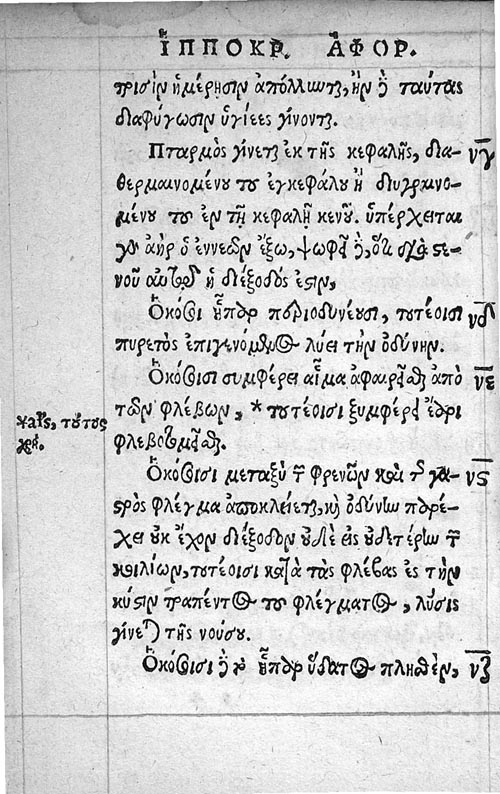 ἹΠΠΟΚΡ. ἈΦΟΡ.
τρισὶν ἡμέρῃσιν ἀπόλλυνται, ἢν δὲ ταύτας
διαφύγωσιν ὑγιέες γίνονται.
Πταρμὸς γίνεται ἐκ τῆς κεφαλῆς, δια- νγ
θερμαινομένου τοῦ ἐγκεφάλου ἢ διυγραινο-
μένου τοῦ ἐν τῇ κεφαλῇ κενοῦ. ὑπέρχειται
γὰρ ἀὴρ ὁ ἐννεὼν ἔξω, ψωφεῖ δὲ, ὅτι διὰ στε-
νοῦ αὐτοῦ ἡ διέξοδός ἐστιν,
Ὁκόσοι ἧπαρ περιοδυνέουσι, τουτέοισι νδ
πυρετὸς ἐπιγενόμενος λύει τὴν ὀδύνην.
Ὁκόσοισι συμφέρει αἷμα ἀφαιρεῖσθαι ἀπὸ νε
τῶν φλεβῶν, * τουτέοισι ξυμφέρει ἔαρι
φλεβοτομεῖσθαι.
Ὁκόσοισι μεταξὺ τῶν φρενῶν καὶ τῆς γα- νϛ
στρὸς φλέγμα ἀποκλείεται, καὶ ὀδύνην παρέ-
χει οὐκ ἔχον διέξοδον οὐδὲ εἰς οὐδετέρην τῶν
κοιλίων, τουτέοισι κατὰ τὰς φλέβας ἐς τὴν
κύστιν τραπέντος τοῦ φλέγματος, λύσις
γίνεται τῆς νούσου.
Ὁκόσοισι δ᾽ ἂν ἧπαρ ὕδατος πλησθὲν, νζ
τούτους